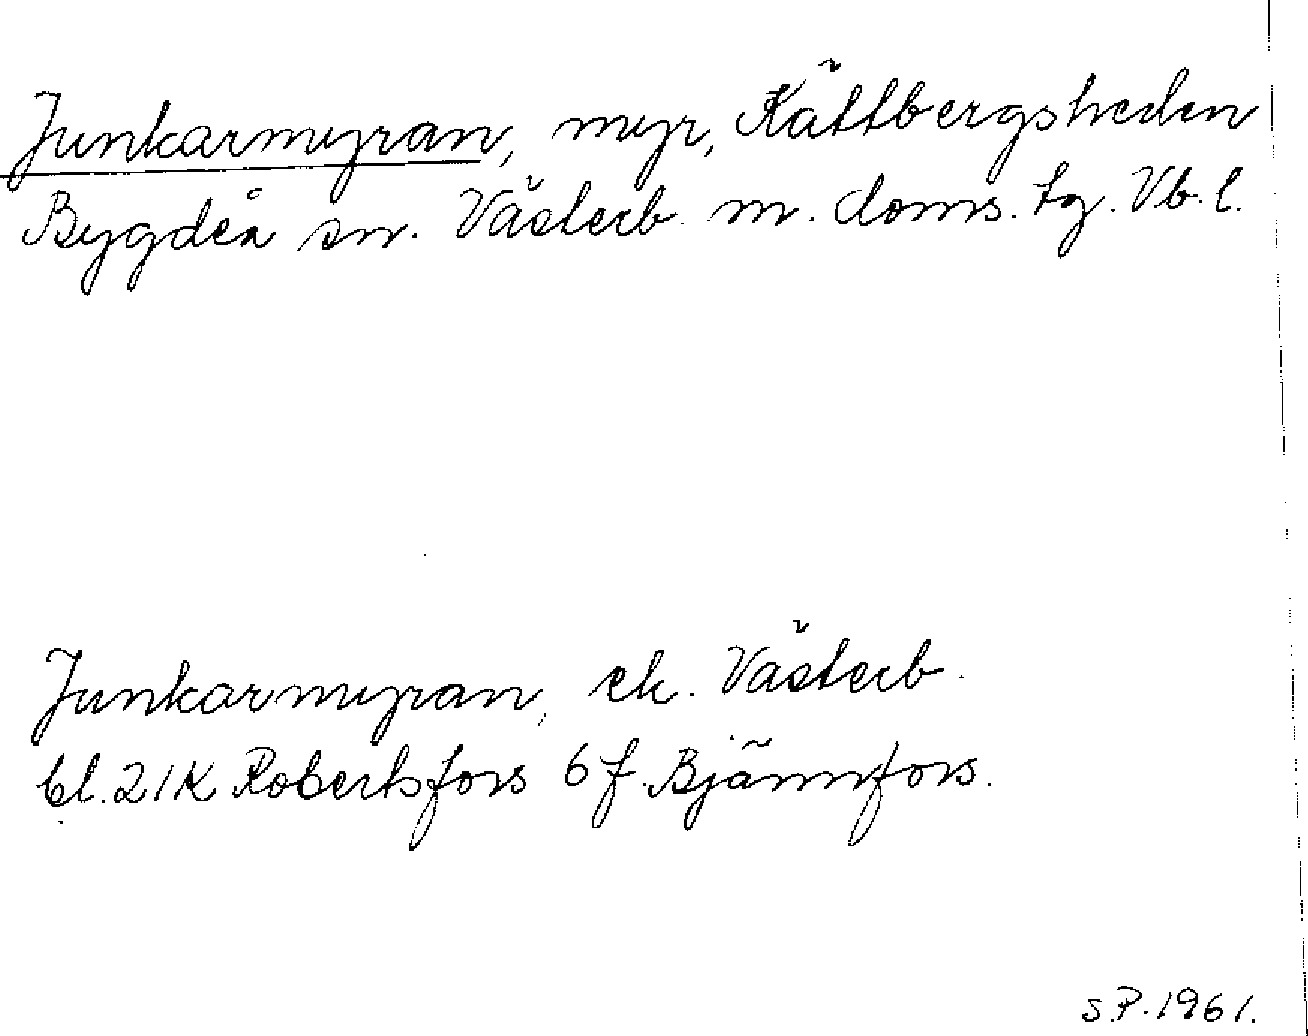 Junkarmyran, myr, Kättbergsheden
Bygdeå sn. Västerb. m. doms. tg. Vb. l.
Junkarmyran, ek. Västerb.
bl. 21K Robertsfors 6 f. Bjännfors.
S.P. 1961.